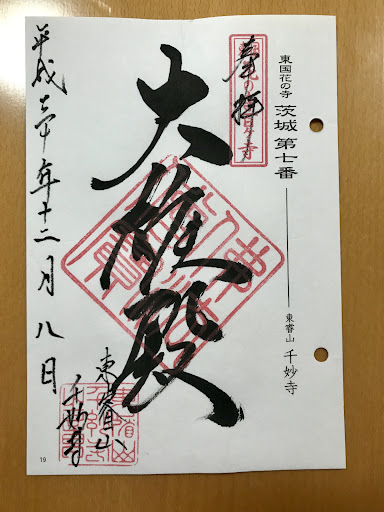 東国花の寺 茨城 第七番 東睿山 千妙寺
奉拝
大雄殿
東睿山
千妙寺
平成三十年十二月八日
19